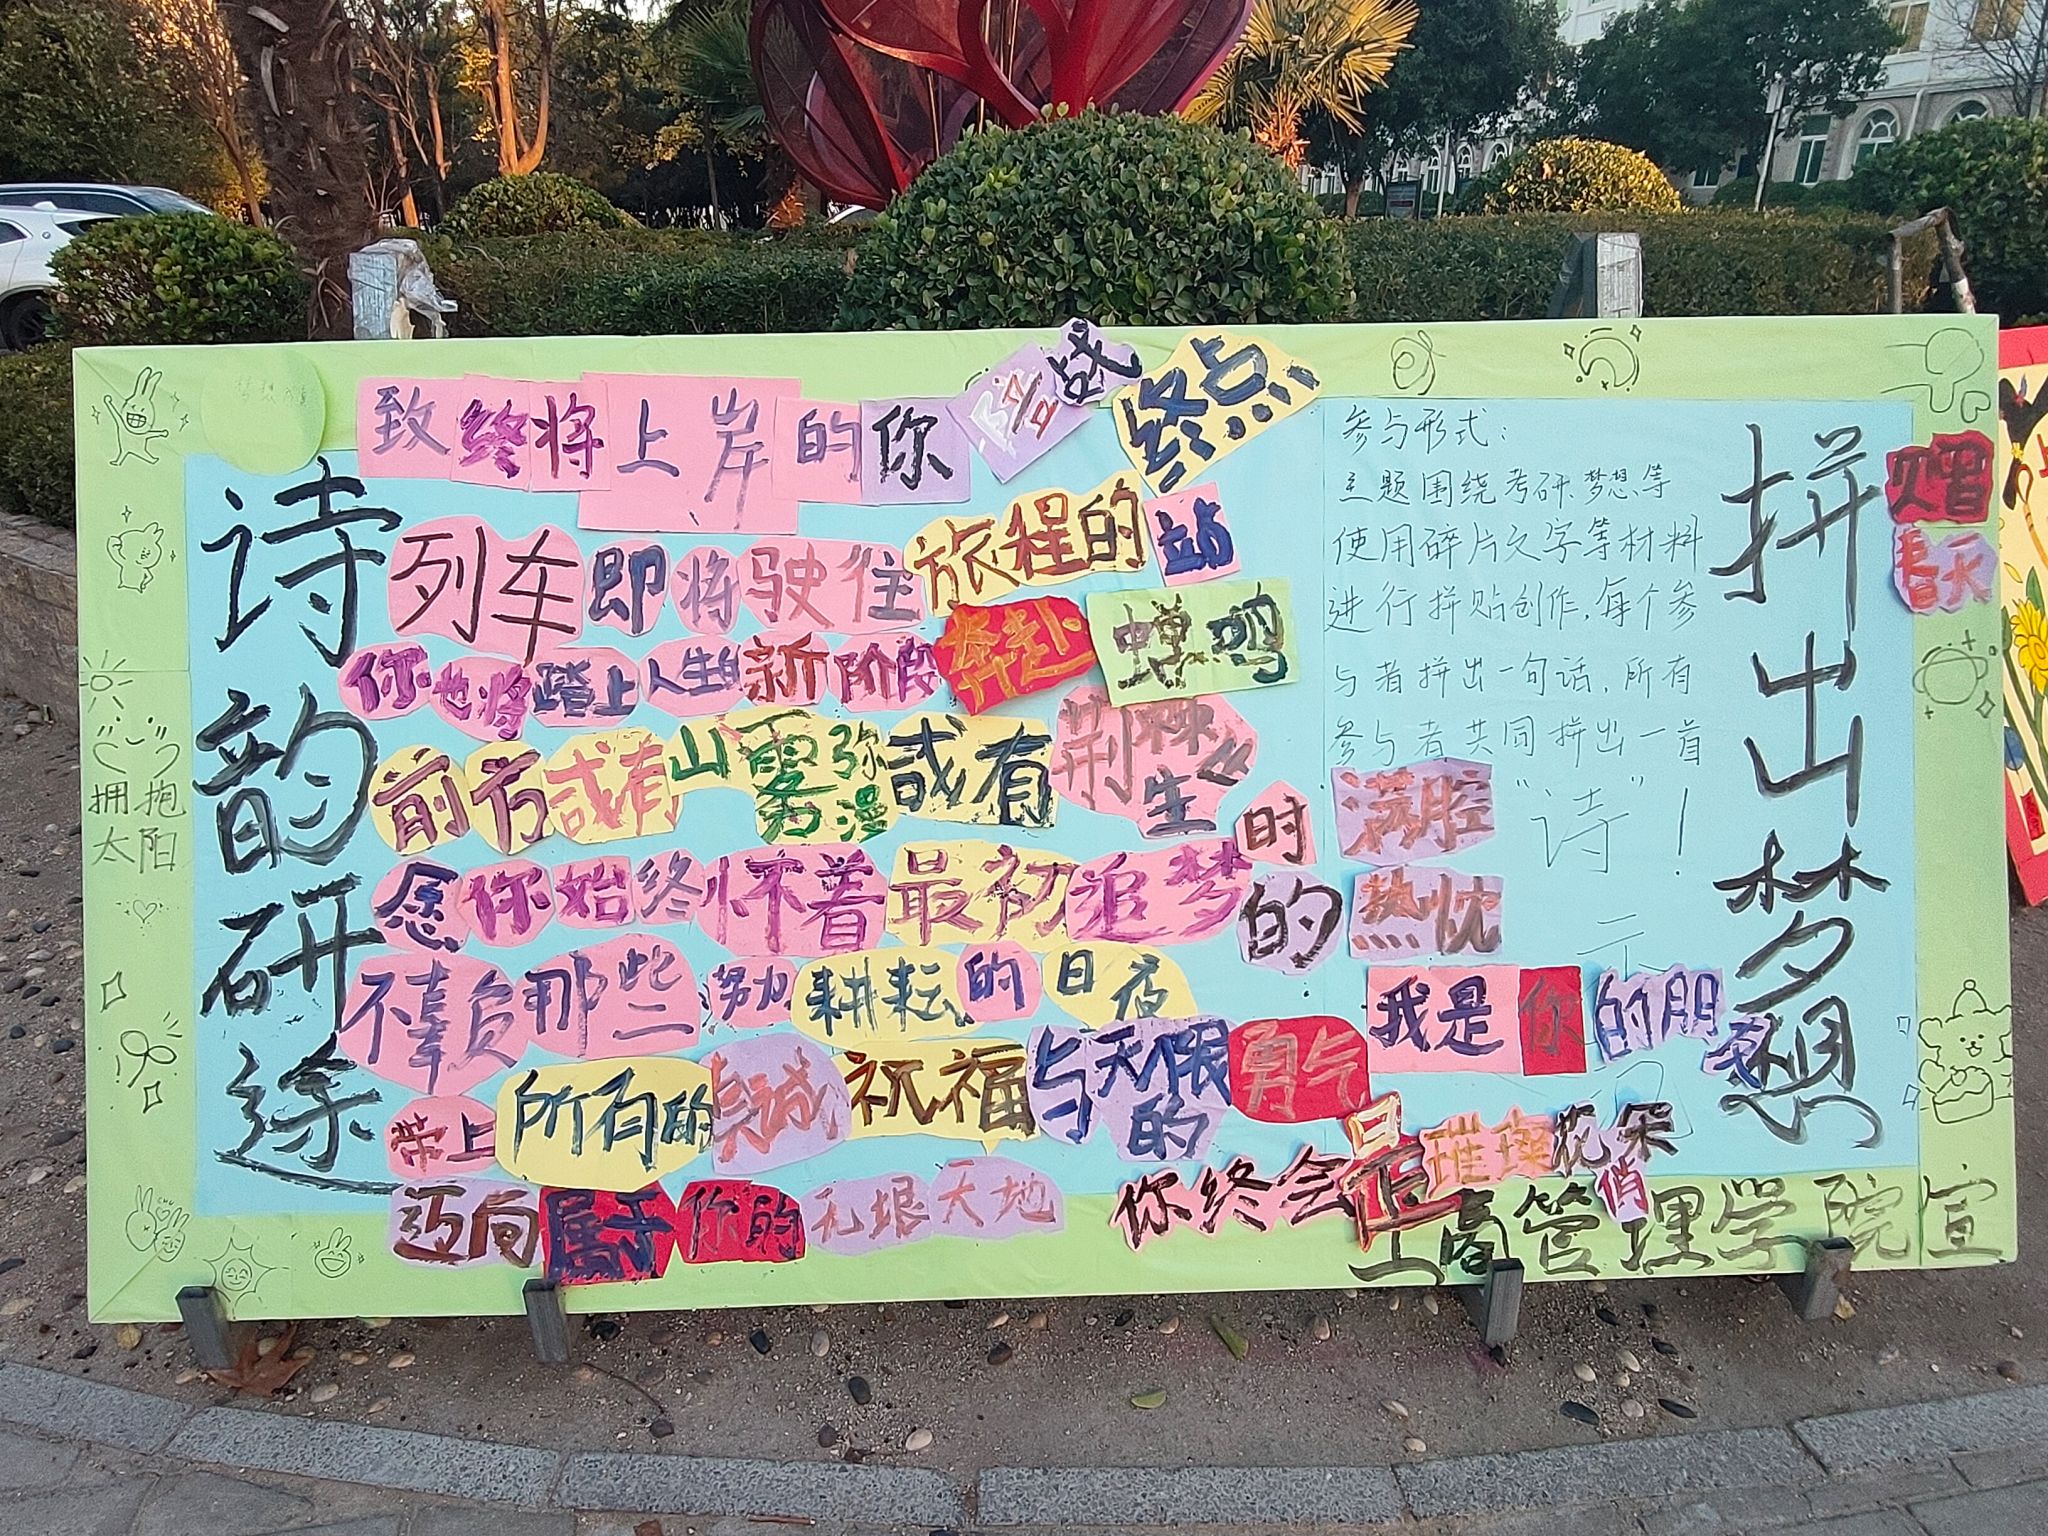 诗韵研途
致终将上岸的你
终点
列车即将驶往旅程的站
你也将踏上人生的新阶段
奔赴
蝉鸣
前方或有山雾弥漫或有荆棘丛生时
愿你始终怀着最初追梦的
满腔
热忱
不辜负那些努力耕耘的日夜
我是你的朋友
带上所有的真诚祝福与无限的勇气
迈向属于你的无垠天地
你终会是璀璨花朵
俏
参与形式：
主题围绕考研、梦想等
使用碎片文字等材料
进行拼贴创作，每个参
与者拼出一句话，所有
参与者共同拼出一首
“诗”！
拼出梦想
春天
拥抱
太阳
工商管理学院宣